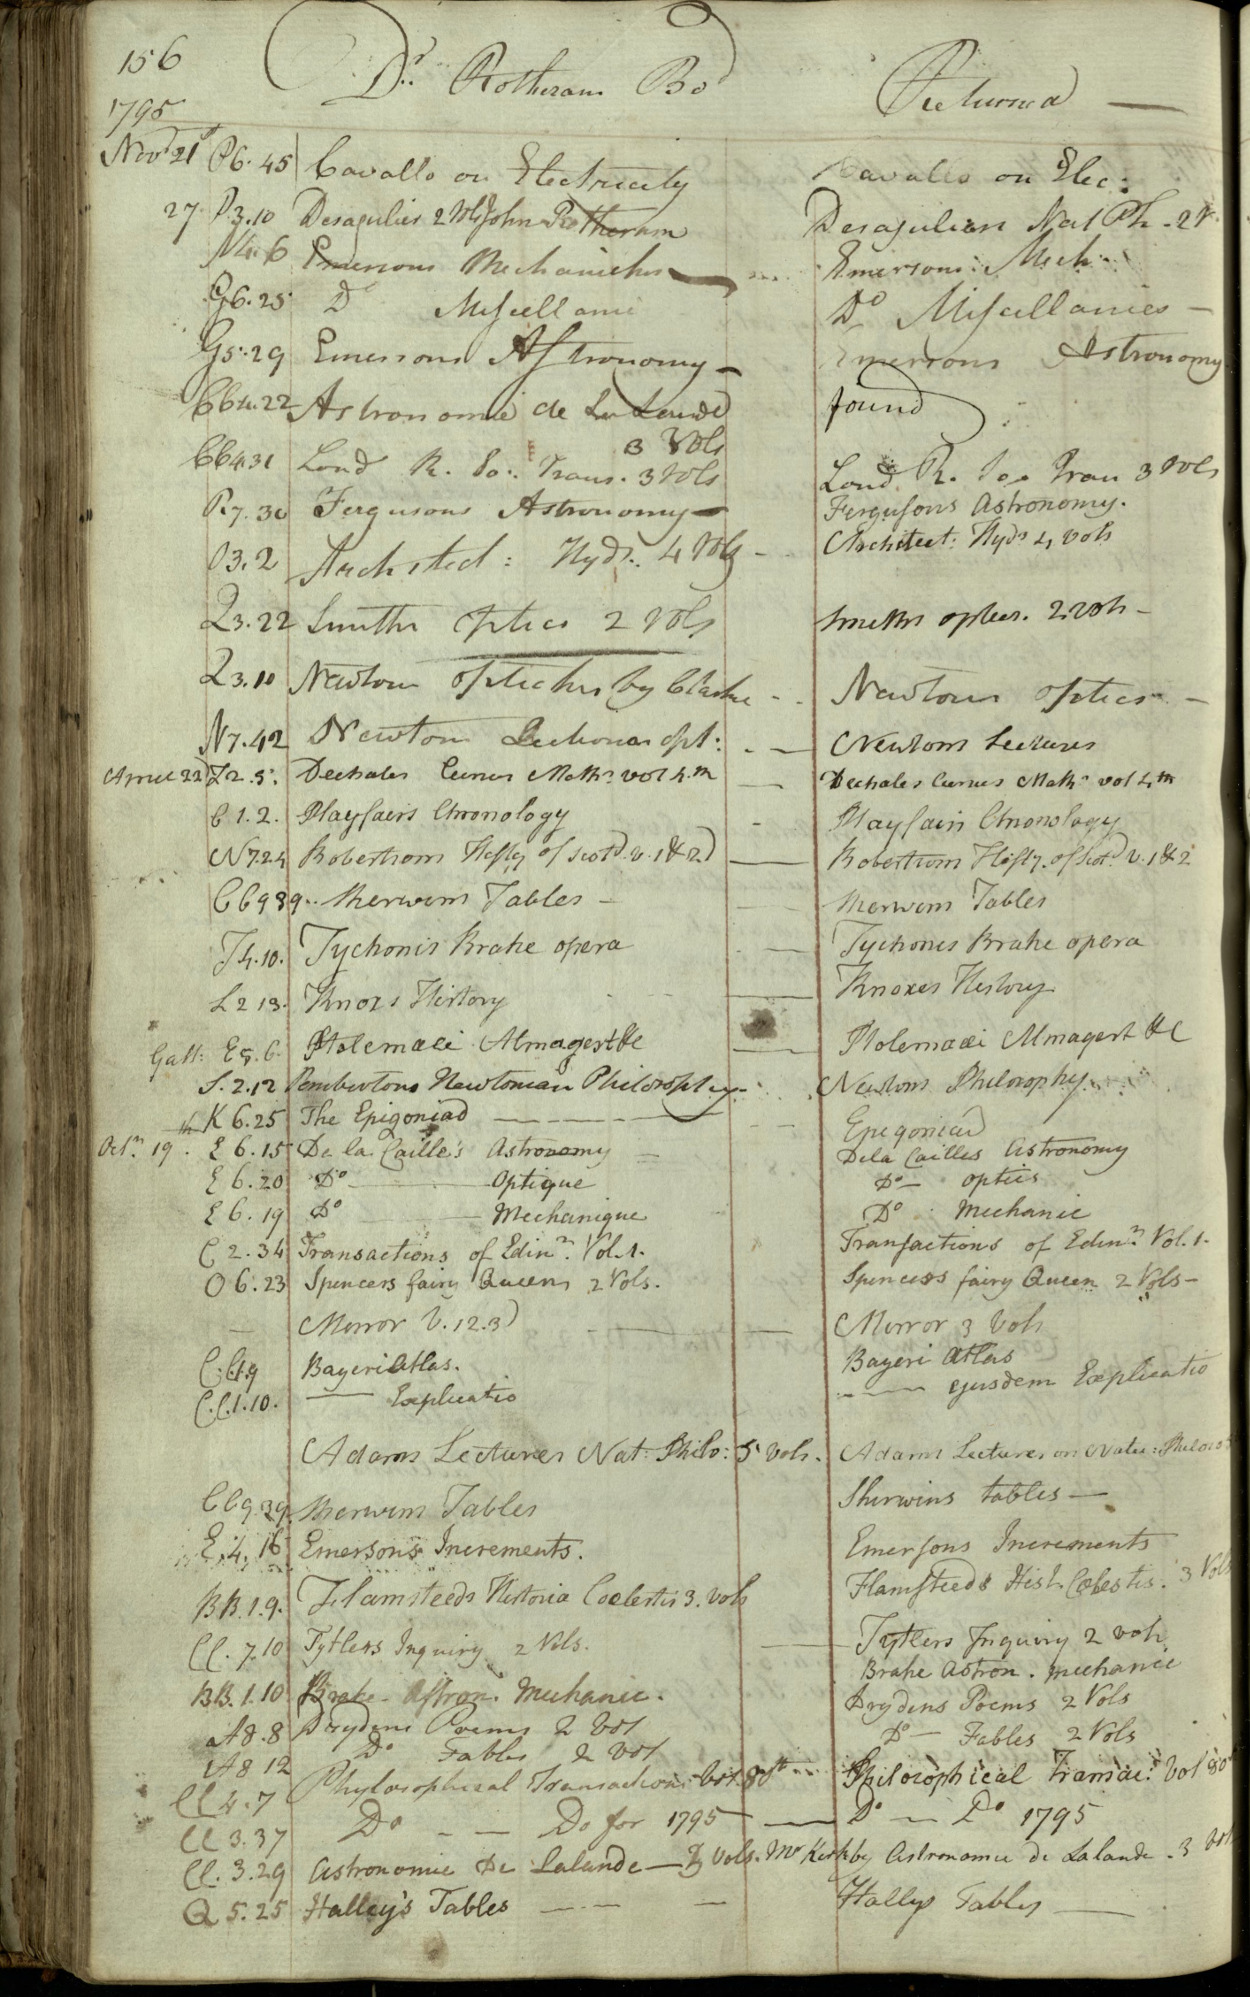 156 Dr. Rotheram Bod Returned —
1795
Novr 21 P6.45 Cavallo on Electricity Cavallo on Elec:
27 P.3.10 Desagulier 2 Vols John Rotheram Desagulien Nat Ph. 2 V.
N4.6 Emersons Mechanicks Emersons Mech.
G6.25 Do Miscellanie Do Miscellanies —
G5.29 Emersons Astronomy — Emersons Astronomy
Bb4.22 Astronomie de La Lande found
3 Vols
Bb4.31 Lond R. So: Trans. 3 Vols Lond R. Soc Tran 3 Vols
P.7.30 Fergusons Astronomy — Fergusons Astronomy.
O3.2 Architect: Hydr. 4 Vols - Architect: Hydr 4 vols
Q3.22 Smiths Optics 2 Vols Smiths optics. 2 vols —
Q3.10 Newtons opticks by Clarke - - Newtons optics —
N7.42 Newton Lectiones opt: - — Newtons Lectures
Aprill 22d Z2.5. Dechales Cursus Math: vol 4.th — Dechales Cursus Math: vol 4th
C1.2. Playfairs Chronology - Playfairs Chronology
N7.24 Robertsons Histy of Scotd. v. 1 & 2d — Robertsons Histy. of Scotd. V. 1 & 2
Cc9 39.. Sherwins Tables — — Sherwins Tables
T4.10. Tychonis Brahe opera - — Tychonis Brahe opera
L2 13. Knoxs History — Knoxes History
Gall: E5.6. Ptolemaei Almagest &c — Ptolemaei Almagest &c
S.2.12 Pembertons Newtonian Philosophy Newtons Philosophy
K6.25 The Epigoniad — — — — — Epigoniad
Octr. 19th. E6.15 De la Caille's Astronomy — Dela Cailles Astronomy
E6.20 Do — Optique Do — optics
E6.19 Do — Mechanique Do Mechanic
C2.34 Transactions of Edinr. Vol. 1. Transactions of Edinr. Vol. 1.
O6.23 Spencers fairy Queen, 2 Vols. Spencers fairy Queen 2 Vols —
— Mirror V. 1 2. 3d — — Mirror 3 Vols
C.C.1.9 Bayeri Atlas. Bayeri Atlas
C.C.1.10. — Explicatio — ejusdem Explicatio
Adams Lectures Nat: Philo: 5 vols. Adams Lectures on Natu: Philoso
Cc9.39 Sherwins Tables Sherwins tables —
E.4.16 Emersons Increments. Emersons Increments
BB.1.9. Flamsteeds Historia Coelestis 3. vols Flamsteeds Hist. Coelestis. 3 Vols
CC.7.10 Tytlers Inquiry 2 Vols. — Tytlers Inquiry 2 vols
BB.1.10 Brahe Astron. Mechanic. Brahe Astron. mechanic
A8.8 Drydens Poems 2 Vol Drydens Poems 2 Vols
A8 12 Do Fables 2 vol Do — Fables 2 Vols
CC4.7 Phylosophical Transactions Vol. 80th - - Philosophical Transac: Vol 80th
CC3.37 Do — — Do for 1795 — Do — Do 1795
CC.3.29 Astronomie De Lalande — 3 vols. Mr Kirkby Astronomie de Lalande - 3 vol
Q5.25 Halley's Tables — — — Halleys Tables —